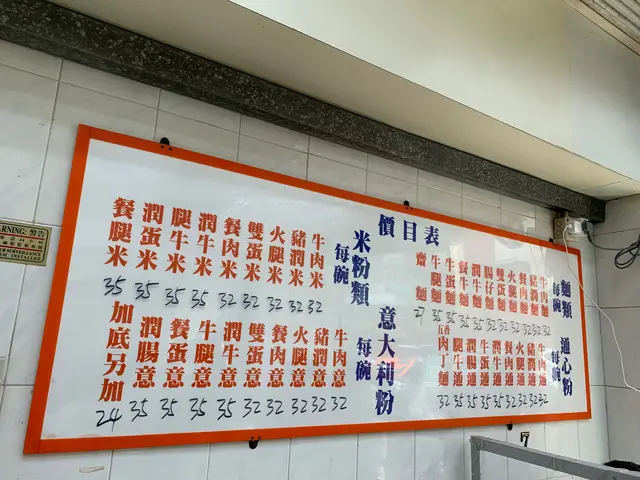 價目表
麵類
每碗
牛肉麵 32
豬潤麵 32
餐肉麵 32
火腿麵 32
雙蛋麵 32
腸仔麵 32
潤牛麵 35
餐牛麵 35
牛蛋麵 35
牛腿麵 35
齋麵 27
通心粉
每碗
牛肉通 32
豬潤通 32
火腿通 32
餐肉通 32
雙蛋通 32
潤牛通 35
牛蛋通 35
潤腸通 35
腿牛通 35
五香肉丁麵 32
米粉類
每碗
牛肉米 32
豬潤米 32
火腿米 32
雙蛋米 32
餐肉米 32
潤牛米 35
腿牛米 35
潤蛋米 35
餐腿米 35
意大利粉
每碗
牛肉意 32
豬潤意 32
火腿意 32
餐肉意 32
雙蛋意 32
潤牛意 35
牛腿意 35
餐蛋意 35
潤腸意 35
加底另加 24
7
WARNING: 警告